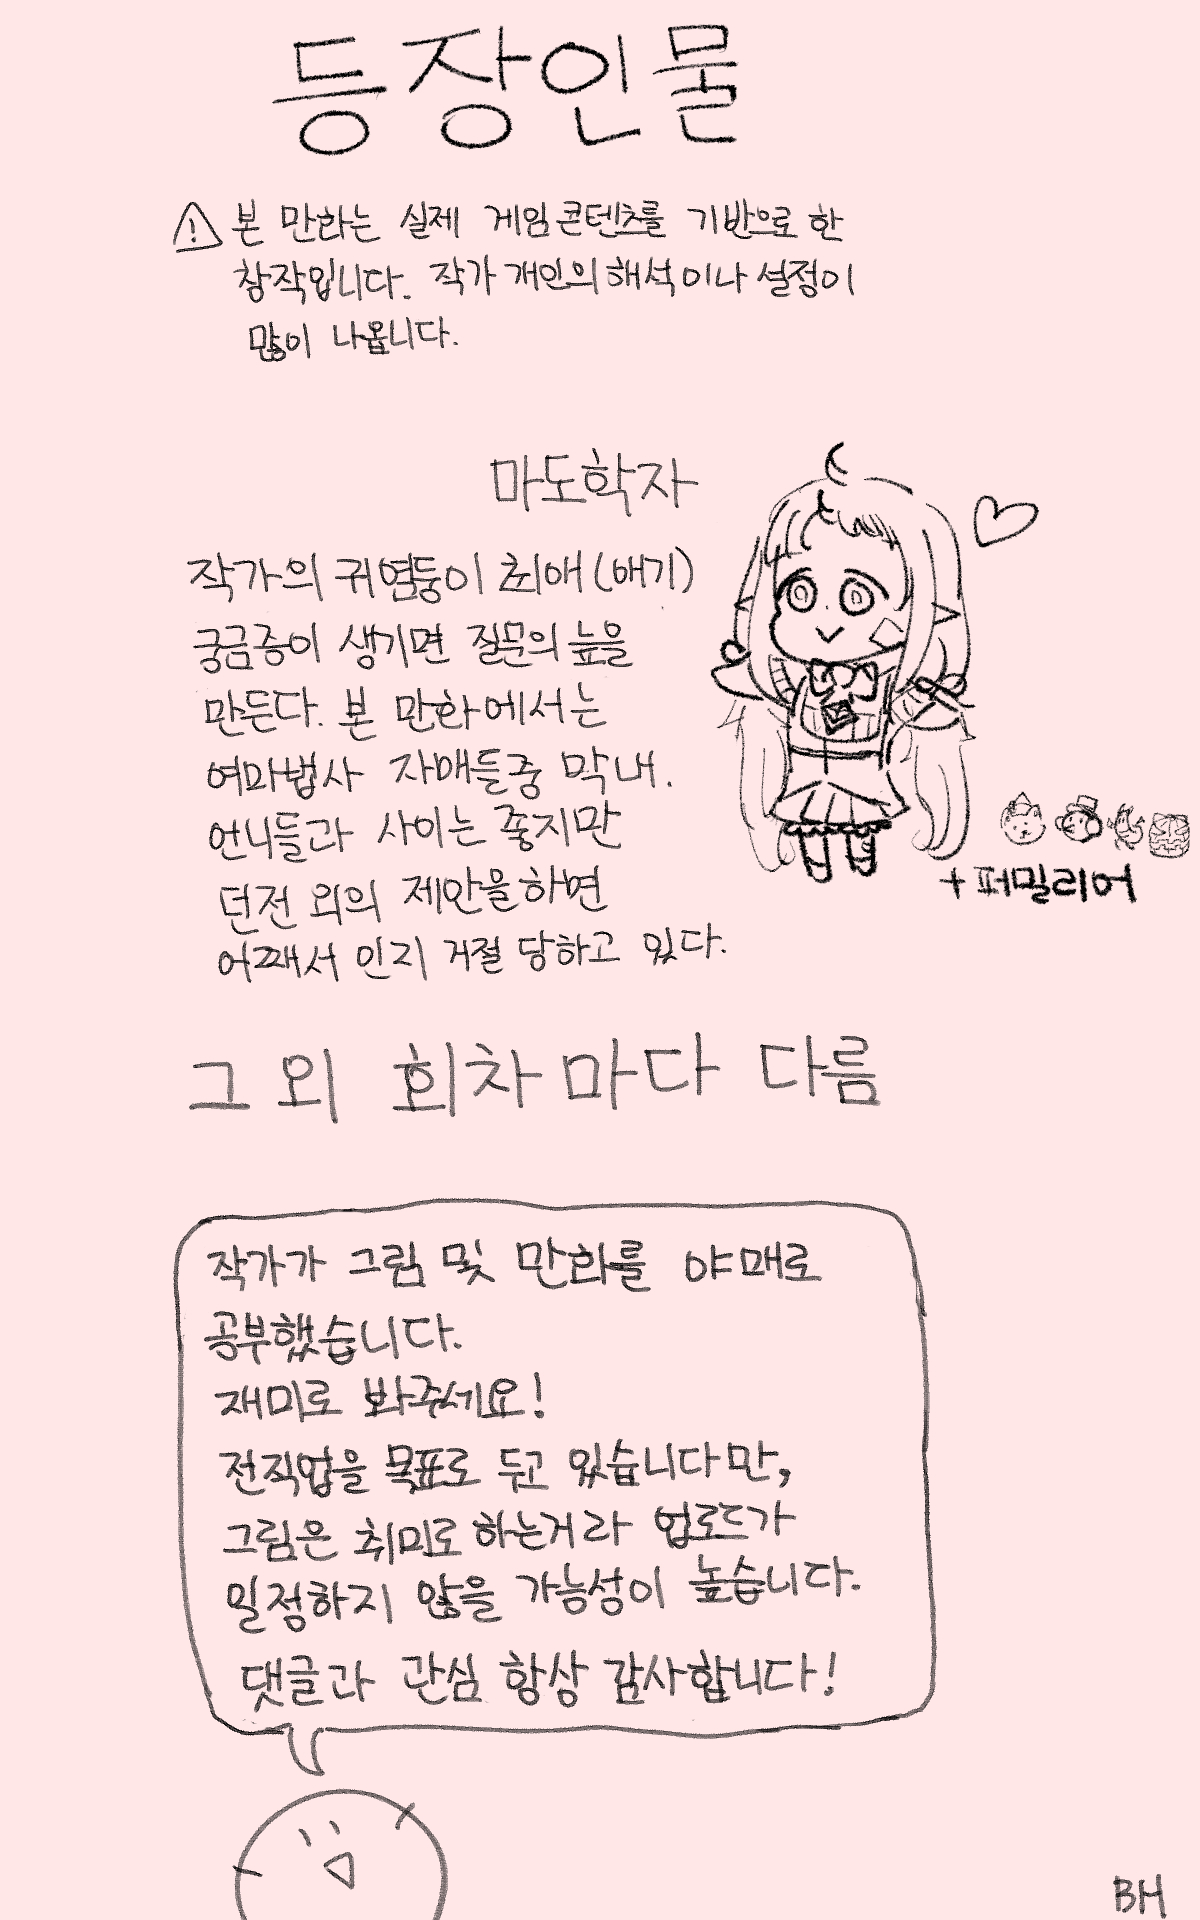 등장인물
⚠ 본 만화는 실제 게임콘텐츠를 기반으로 한
창작입니다. 작가 개인의 해석이나 설정이
많이 나옵니다.
마도학자
작가의 귀염둥이 최애(애기)
궁금증이 생기면 질문의 늪을
만든다. 본 만화에서는
여마법사 자매들중 막내.
언니들과 사이는 좋지만
던전 외의 제안을하면
어째서 인지 거절 당하고 있다.
+퍼밀리어
그 외 회차마다 다름
작가가 그림 및 만화를 야매로
공부했습니다.
재미로 봐주세요!
전직업을 목표로 두고 있습니다만,
그림은 취미로 하는거라 업로드가
일정하지 않을 가능성이 높습니다.
댓글과 관심 항상 감사합니다!
BH